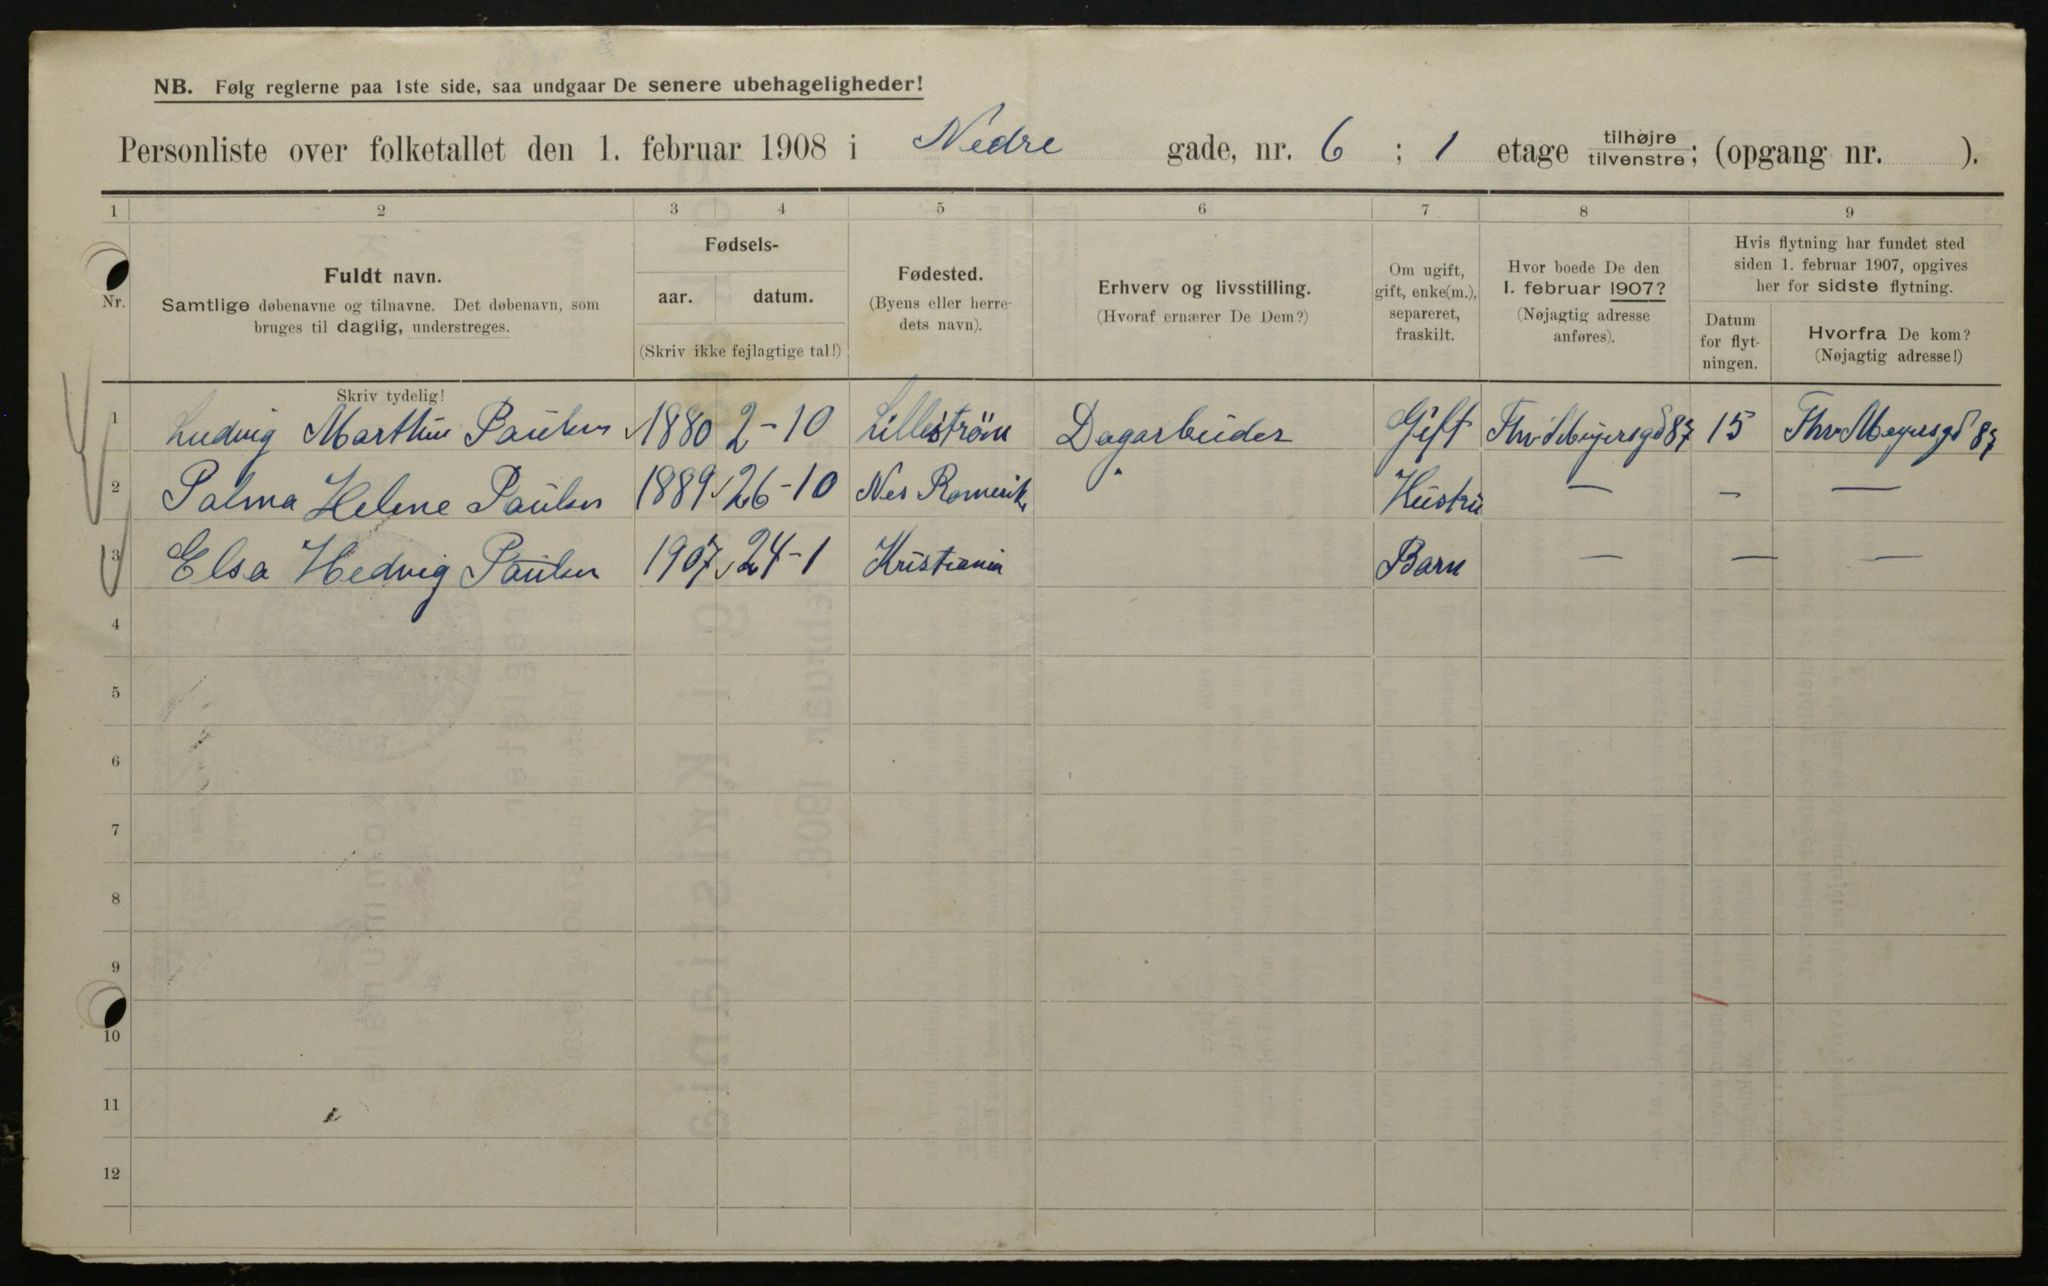 NB. Følg reglerne paa 1ste side, saa undgaar De senere ubehageligheder!
Personliste over folketallet den 1. februar 1908 i Nedre gade, nr. 6 ; 1 etage tilhøjre tilvenstre; (opgang nr. ).
1 2 3 4 5 6 7 8 9
Nr.
Fuldt navn.
Samtlige døbenavne og tilnavne. Det døbenavn, som
bruges til daglig, understreges.
Skriv tydelig!
Fødsels-
aar. datum.
(Skriv ikke fejlagtige tal!)
Fødested.
(Byens eller herre-
dets navn).
Erhverv og livsstilling.
(Hvoraf ernærer De Dem?)
Om ugift,
gift, enke(m.),
separeret,
fraskilt.
Hvor boede De den
1. februar 1907?
(Nøjagtig adresse
anføres).
Hvis flytning har fundet sted
siden 1. februar 1907, opgives
her for sidste flytning.
Datum
for flyt-
ningen.
Hvorfra De kom?
(Nøjagtig adresse!)
1 Ludvig Marthin Paulsen 1880 2-10 Lilleström Dagarbeider Gift Thv Meyersgd 87 15 Thv Meyersgd 87
2 Palma Helene Paulsen 1889 26-10 Nes Romerik " Hustru — — —
3 Elsa Hedvig Paulsen 1907 24-1 Kristiania Barn — — —
4
5
6
7
8
9
10
11
12